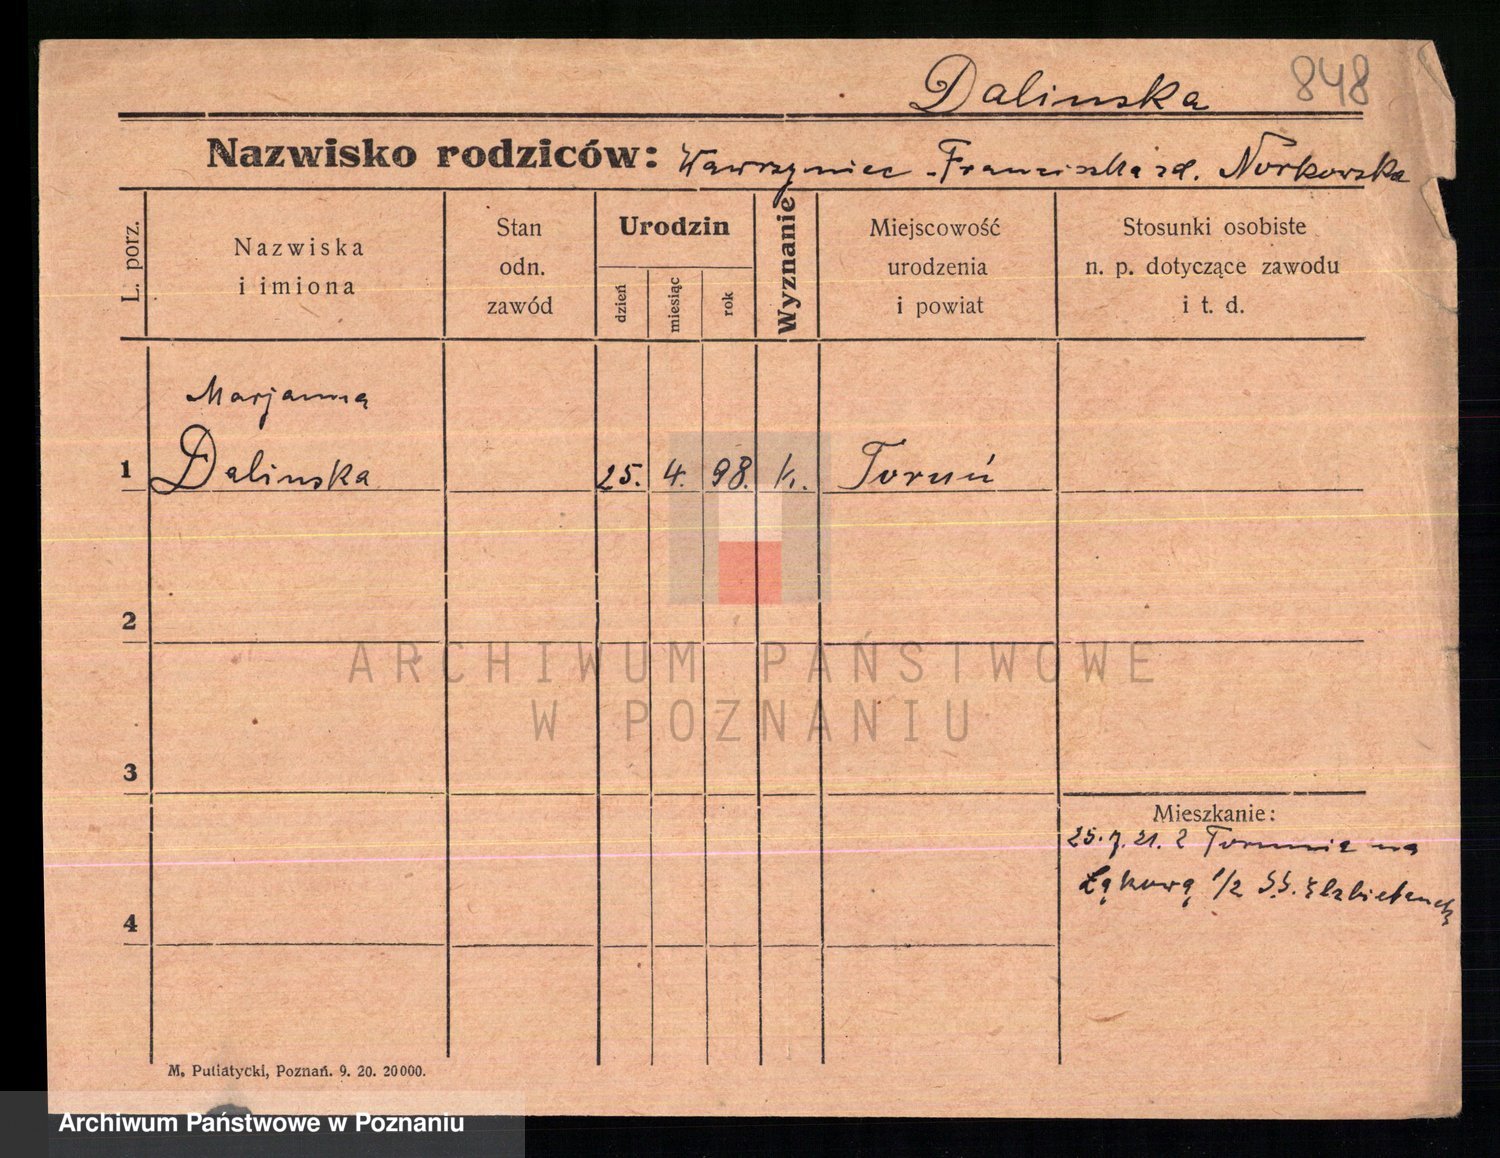 Dalinska 848
Nazwisko rodziców: Wawrzyniec - Franciszka zd. Norkowska
L. porz.
Nazwiska
i imiona
Stan
odn.
zawód
Urodzin
dzień
miesiąc
rok
Wyznanie
Miejscowość
urodzenia
i powiat
Stosunki osobiste
n. p. dotyczące zawodu
i t. d.
Marjanna
1 Dalinska 25. 4. 98. k. Toruń
2
ARCHIWUM PAŃSTWOWE
W POZNANIU
3
Mieszkanie:
25.7.21. z Torunia na
Łąkową 1/2 S.S. Elżbietanek
4
M. Putiatycki, Poznań. 9. 20. 20000.
Archiwum Państwowe w Poznaniu